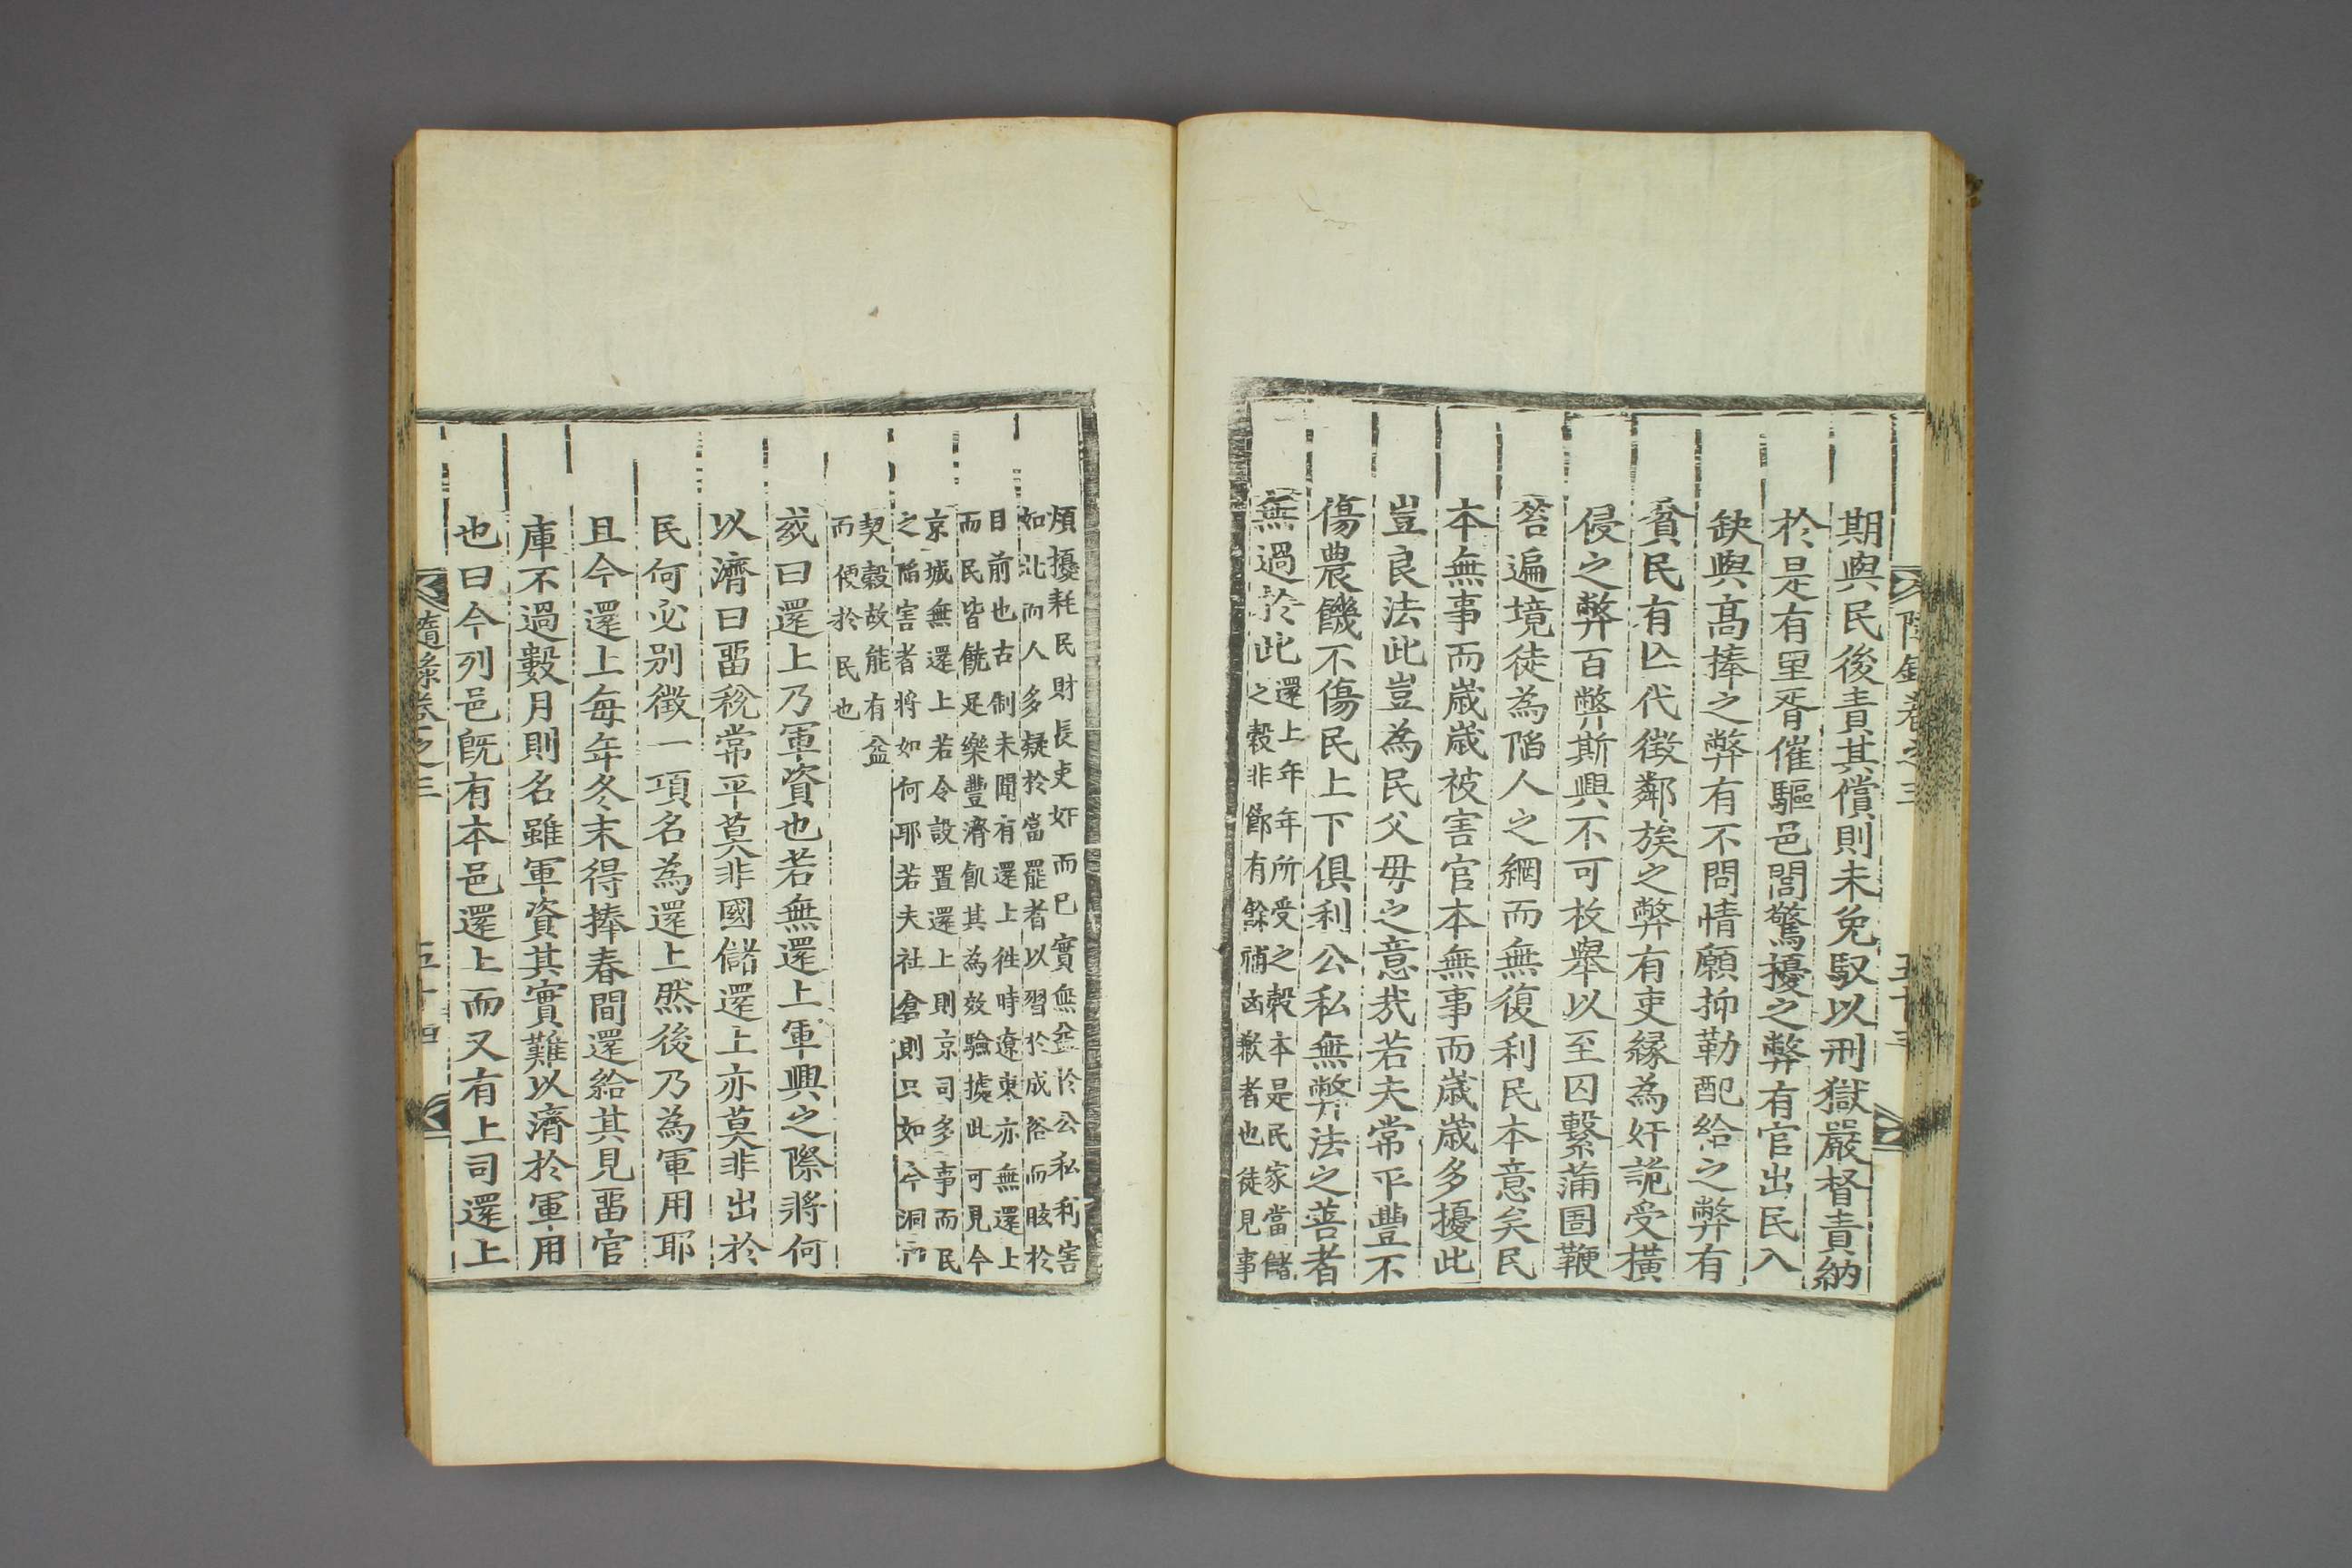 隨錄卷之三
五十三
期與民後責其償則未免馭以刑獄嚴督責納
於是有里胥催驅邑閭驚擾之弊有官出民入
缺與高捧之弊有不問情願抑勒配給之弊有
貧民有亾代徵鄰族之弊有吏緣為奸詭受橫
侵之弊百弊斯興不可枚舉以至囚繫蒲圄鞭
笞遍境徒為陷人之網而無復利民本意矣民
本無事而歲歲被害官本無事而歲歲多擾此
豈良法此豈為民父母之意哉若夫常平豐不
傷農饑不傷民上下俱利公私無弊法之善者
無過於此
還上年年所受之穀本是民家當儲
之穀非節有餘補凶歉者也徒見事
煩擾耗民財長吏奸而已實無益於公私利害
如此而人多疑於當罷者以習於成俗而眩於
目前也古制未聞有還上徃時遼東亦無還上
而民皆饒足樂豐濟飢其為效驗據此可見今
京城無還上若令設置還上則京司多事而民
之陷害者將如何耶若夫社倉則只如今洞內
契穀故能有益
而便於民也
或曰還上乃軍資也若無還上軍興之際將何
以濟曰畱稅常平莫非國儲還上亦莫非出於
民何必別徵一項名為還上然後乃為軍用耶
且今還上每年冬末得捧春間還給其見畱官
庫不過數月則名雖軍資其實難以濟於軍用
也曰今列邑旣有本邑還上而又有上司還上
隨錄卷之三
五十四